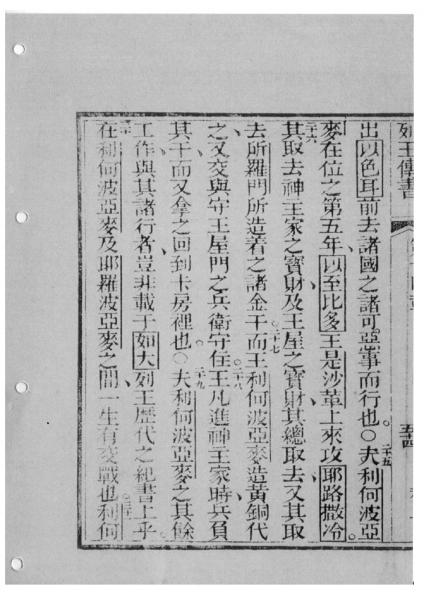 列王傳書
出以色耳前去諸國之諸可惡事而行也。○二十五夫利何波亞
麥在位之第五年、以至比多王是沙革上來攻耶路撒冷。
二十六其取去神王家之寶財、及王屋之寶財、其總取去、又其取
去所羅門所造着之諸金干。二十七而王利何波亞麥造黃銅代
之、又交與守王屋門之兵衛守住。二十八王凡進神王家時、兵負
其干、而又拿之回到卡房裡也○二十九夫利何波亞麥之其餘
工作、與其諸行者、豈非載于如大列王歷代之紀書上乎。
三十在利何波亞麥及耶羅波亞麥之間、一生有交戰也。三十一利何